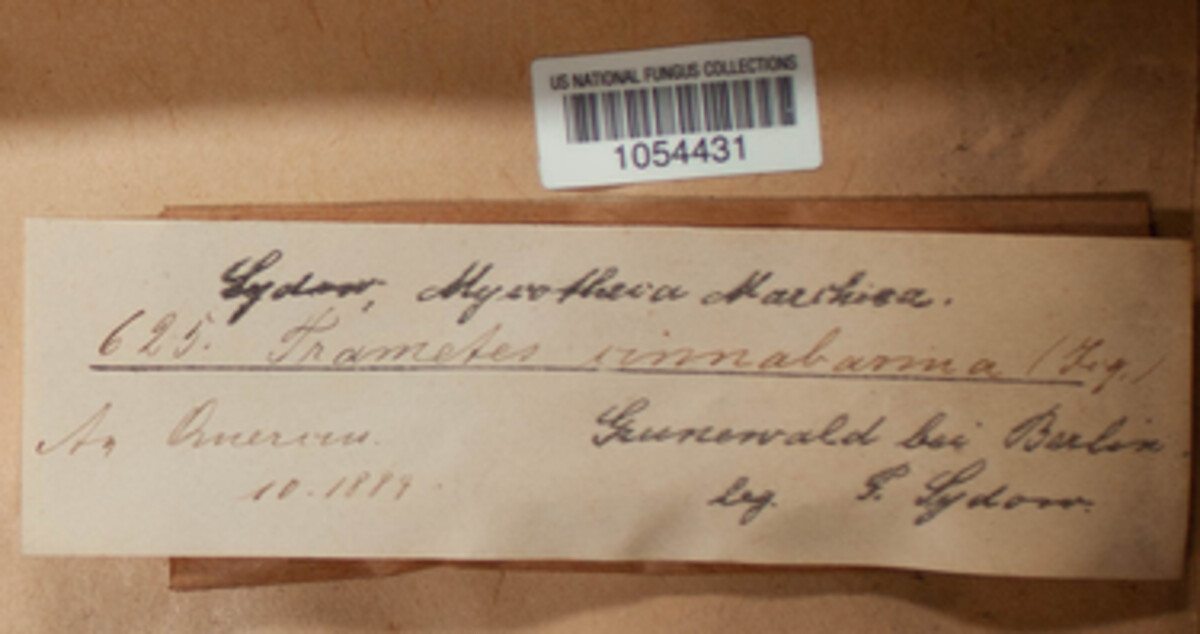 US NATIONAL FUNGUS COLLECTIONS
1054431
Sydow, Mycotheca Marchica.
625. Trametes cinnabarina (Jcq.)
An Quercus.
10.1889.
Grunewald bei Berlin.
leg. P. Sydow.